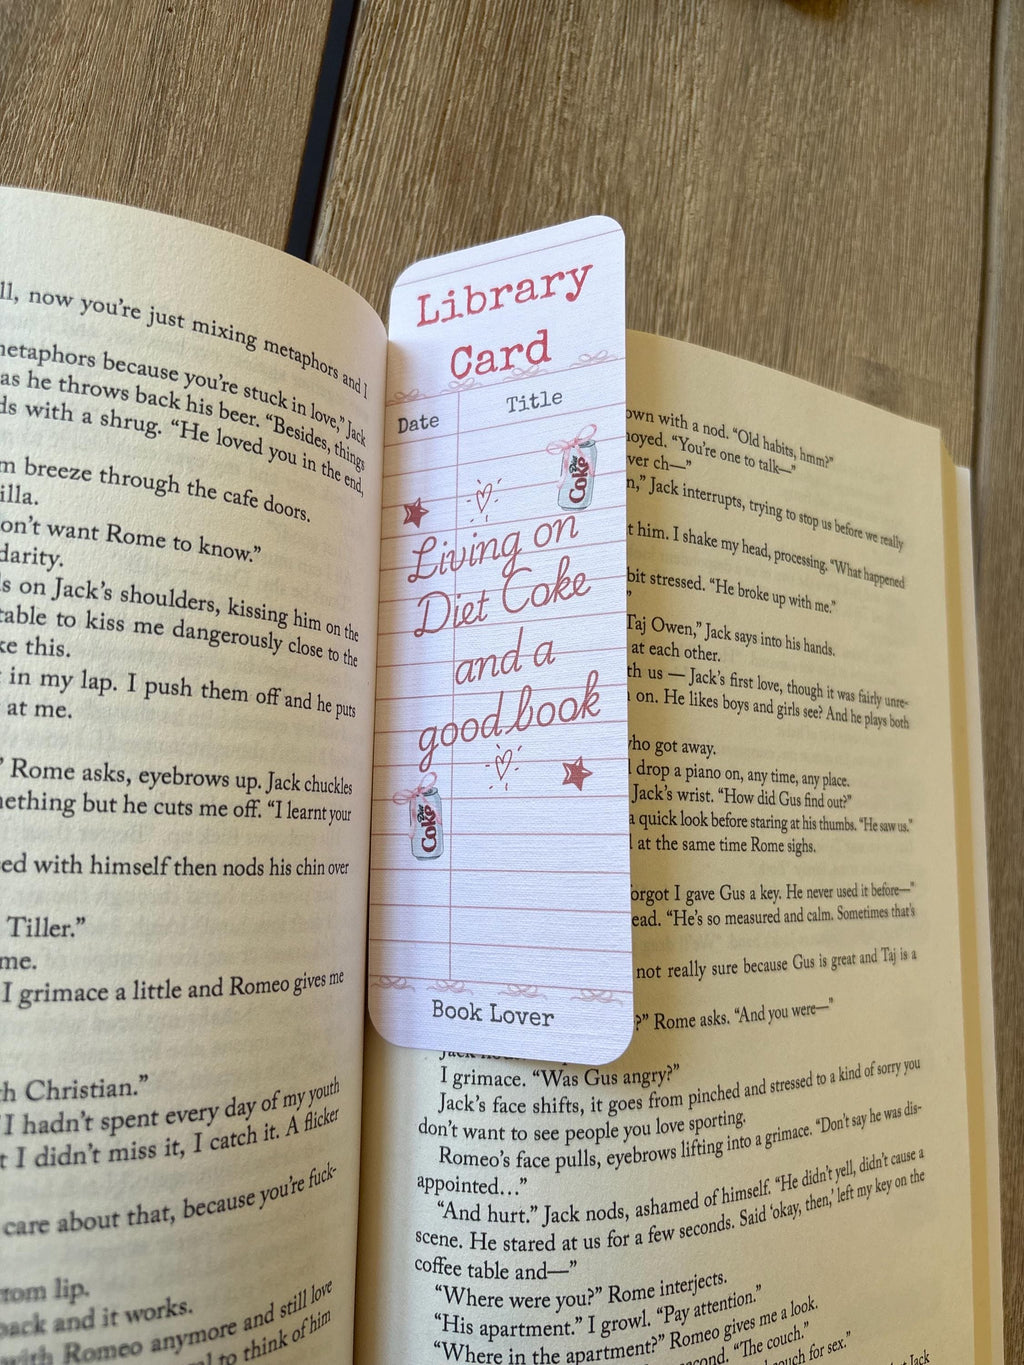 ll, now you're just mixing metaphors and I
metaphors because you're stuck in love," Jack
as he throws back his beer. "Besides, things
ds with a shrug. "He loved you in the end,
m breeze through the cafe doors.
illa.
on't want Rome to know."
darity.
s on Jack's shoulders, kissing him on the
table to kiss me dangerously close to the
ke this.
in my lap. I push them off and he puts
at me.
" Rome asks, eyebrows up. Jack chuckles
nething but he cuts me off. "I learnt your
ed with himself then nods his chin over
Tiller."
me.
I grimace a little and Romeo gives me
h Christian."
I hadn't spent every day of my youth
t I didn't miss it, I catch it. A flicker
care about that, because you're fuck-
tom lip.
back and it works.
with Romeo anymore and still love
to think of him
Library
Card
Date
Title
Diet
Coke
Living on
Diet Coke
and a
good book
Diet
Coke
Book Lover
own with a nod. "Old habits, hmm?"
noyed. "You're one to talk—"
ver ch—"
n," Jack interrupts, trying to stop us before we really
t him. I shake my head, processing. "What happened
bit stressed. "He broke up with me."
"
Taj Owen," Jack says into his hands.
at each other.
th us — Jack's first love, though it was fairly unre-
on. He likes boys and girls see? And he plays both
who got away.
drop a piano on, any time, any place.
Jack's wrist. "How did Gus find out?"
a quick look before staring at his thumbs. "He saw us."
at the same time Rome sighs.
orgot I gave Gus a key. He never used it before—"
ead. "He's so measured and calm. Sometimes that's
not really sure because Gus is great and Taj is a
?" Rome asks. "And you were—"
I grimace. "Was Gus angry?"
Jack's face shifts, it goes from pinched and stressed to a kind of sorry you
don't want to see people you love sporting.
Romeo's face pulls, eyebrows lifting into a grimace. "Don't say he was dis-
appointed…"
"And hurt." Jack nods, ashamed of himself. "He didn't yell, didn't cause a
scene. He stared at us for a few seconds. Said 'okay, then,' left my key on the
coffee table and—"
"Where were you?" Rome interjects.
"His apartment." I growl. "Pay attention."
"Where in the apartment?" Romeo gives me a look.
"The couch."
couch for sex."
Jack